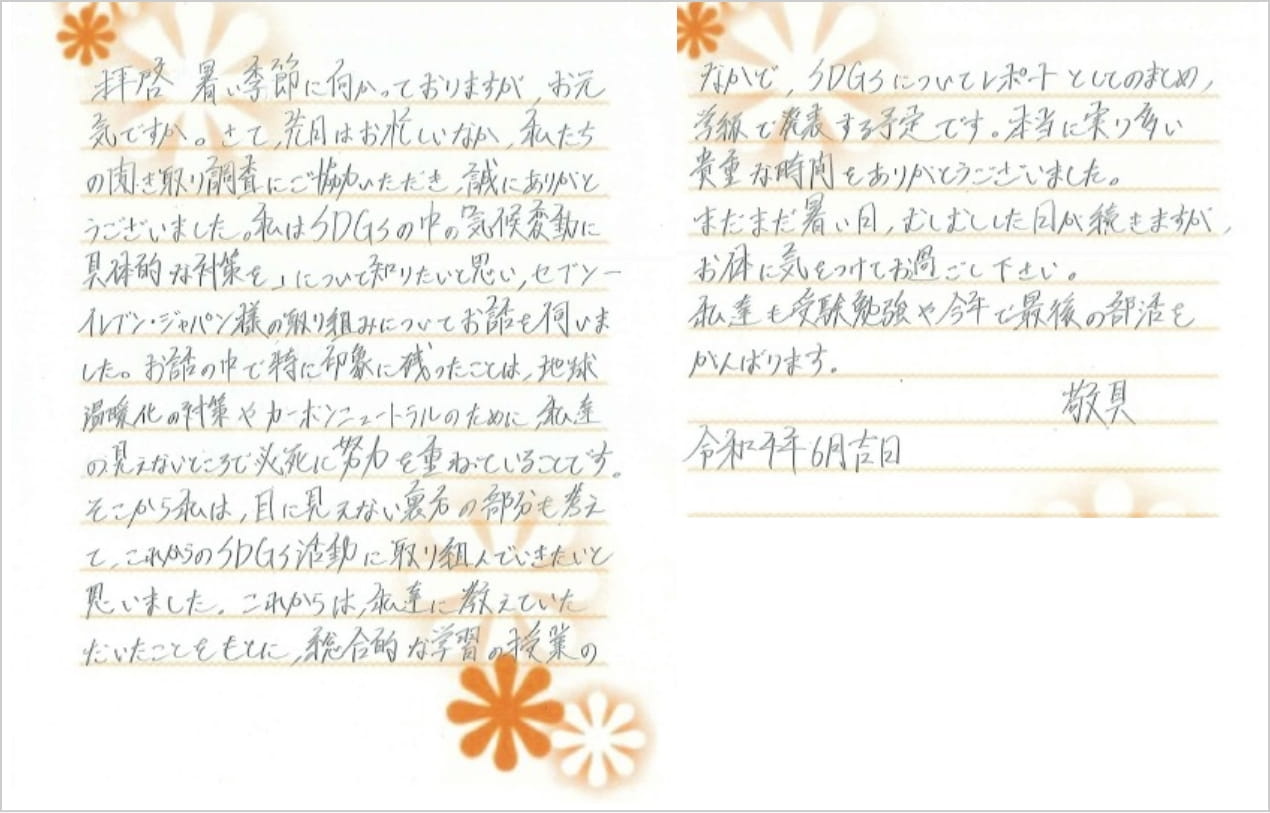 拝啓 暑い季節に向かっておりますが、お元
気ですか。さて、先日はお忙しいなか、私たち
の聞き取り調査にご協力いただき、誠にありがと
うございました。私はSDGsの中の「気候変動に
具体的な対策を」について知りたいと思い、セブン－
イレブン・ジャパン様の取り組みについてお話を伺いま
した。お話の中で特に印象に残ったことは、地球
温暖化の対策やカーボンニュートラルのために、私達
の見えないところで必死に努力を重ねていることです。
そこから私は、目に見えない裏方の部分も考え
て、これからのSDGs活動に取り組んでいきたいと
思いました。これからは、私達に教えていた
だいたことをもとに、総合的な学習の授業の
なかで、SDGsについてレポートとしてのまとめ、
学級で発表する予定です。本当に実り多い
貴重な時間をありがとうございました。
まだまだ暑い日、むしむしした日が続きますが、
お体に気をつけてお過ごし下さい。
私達も受験勉強や今年で最後の部活を
がんばります。
敬具
令和 年6月吉日